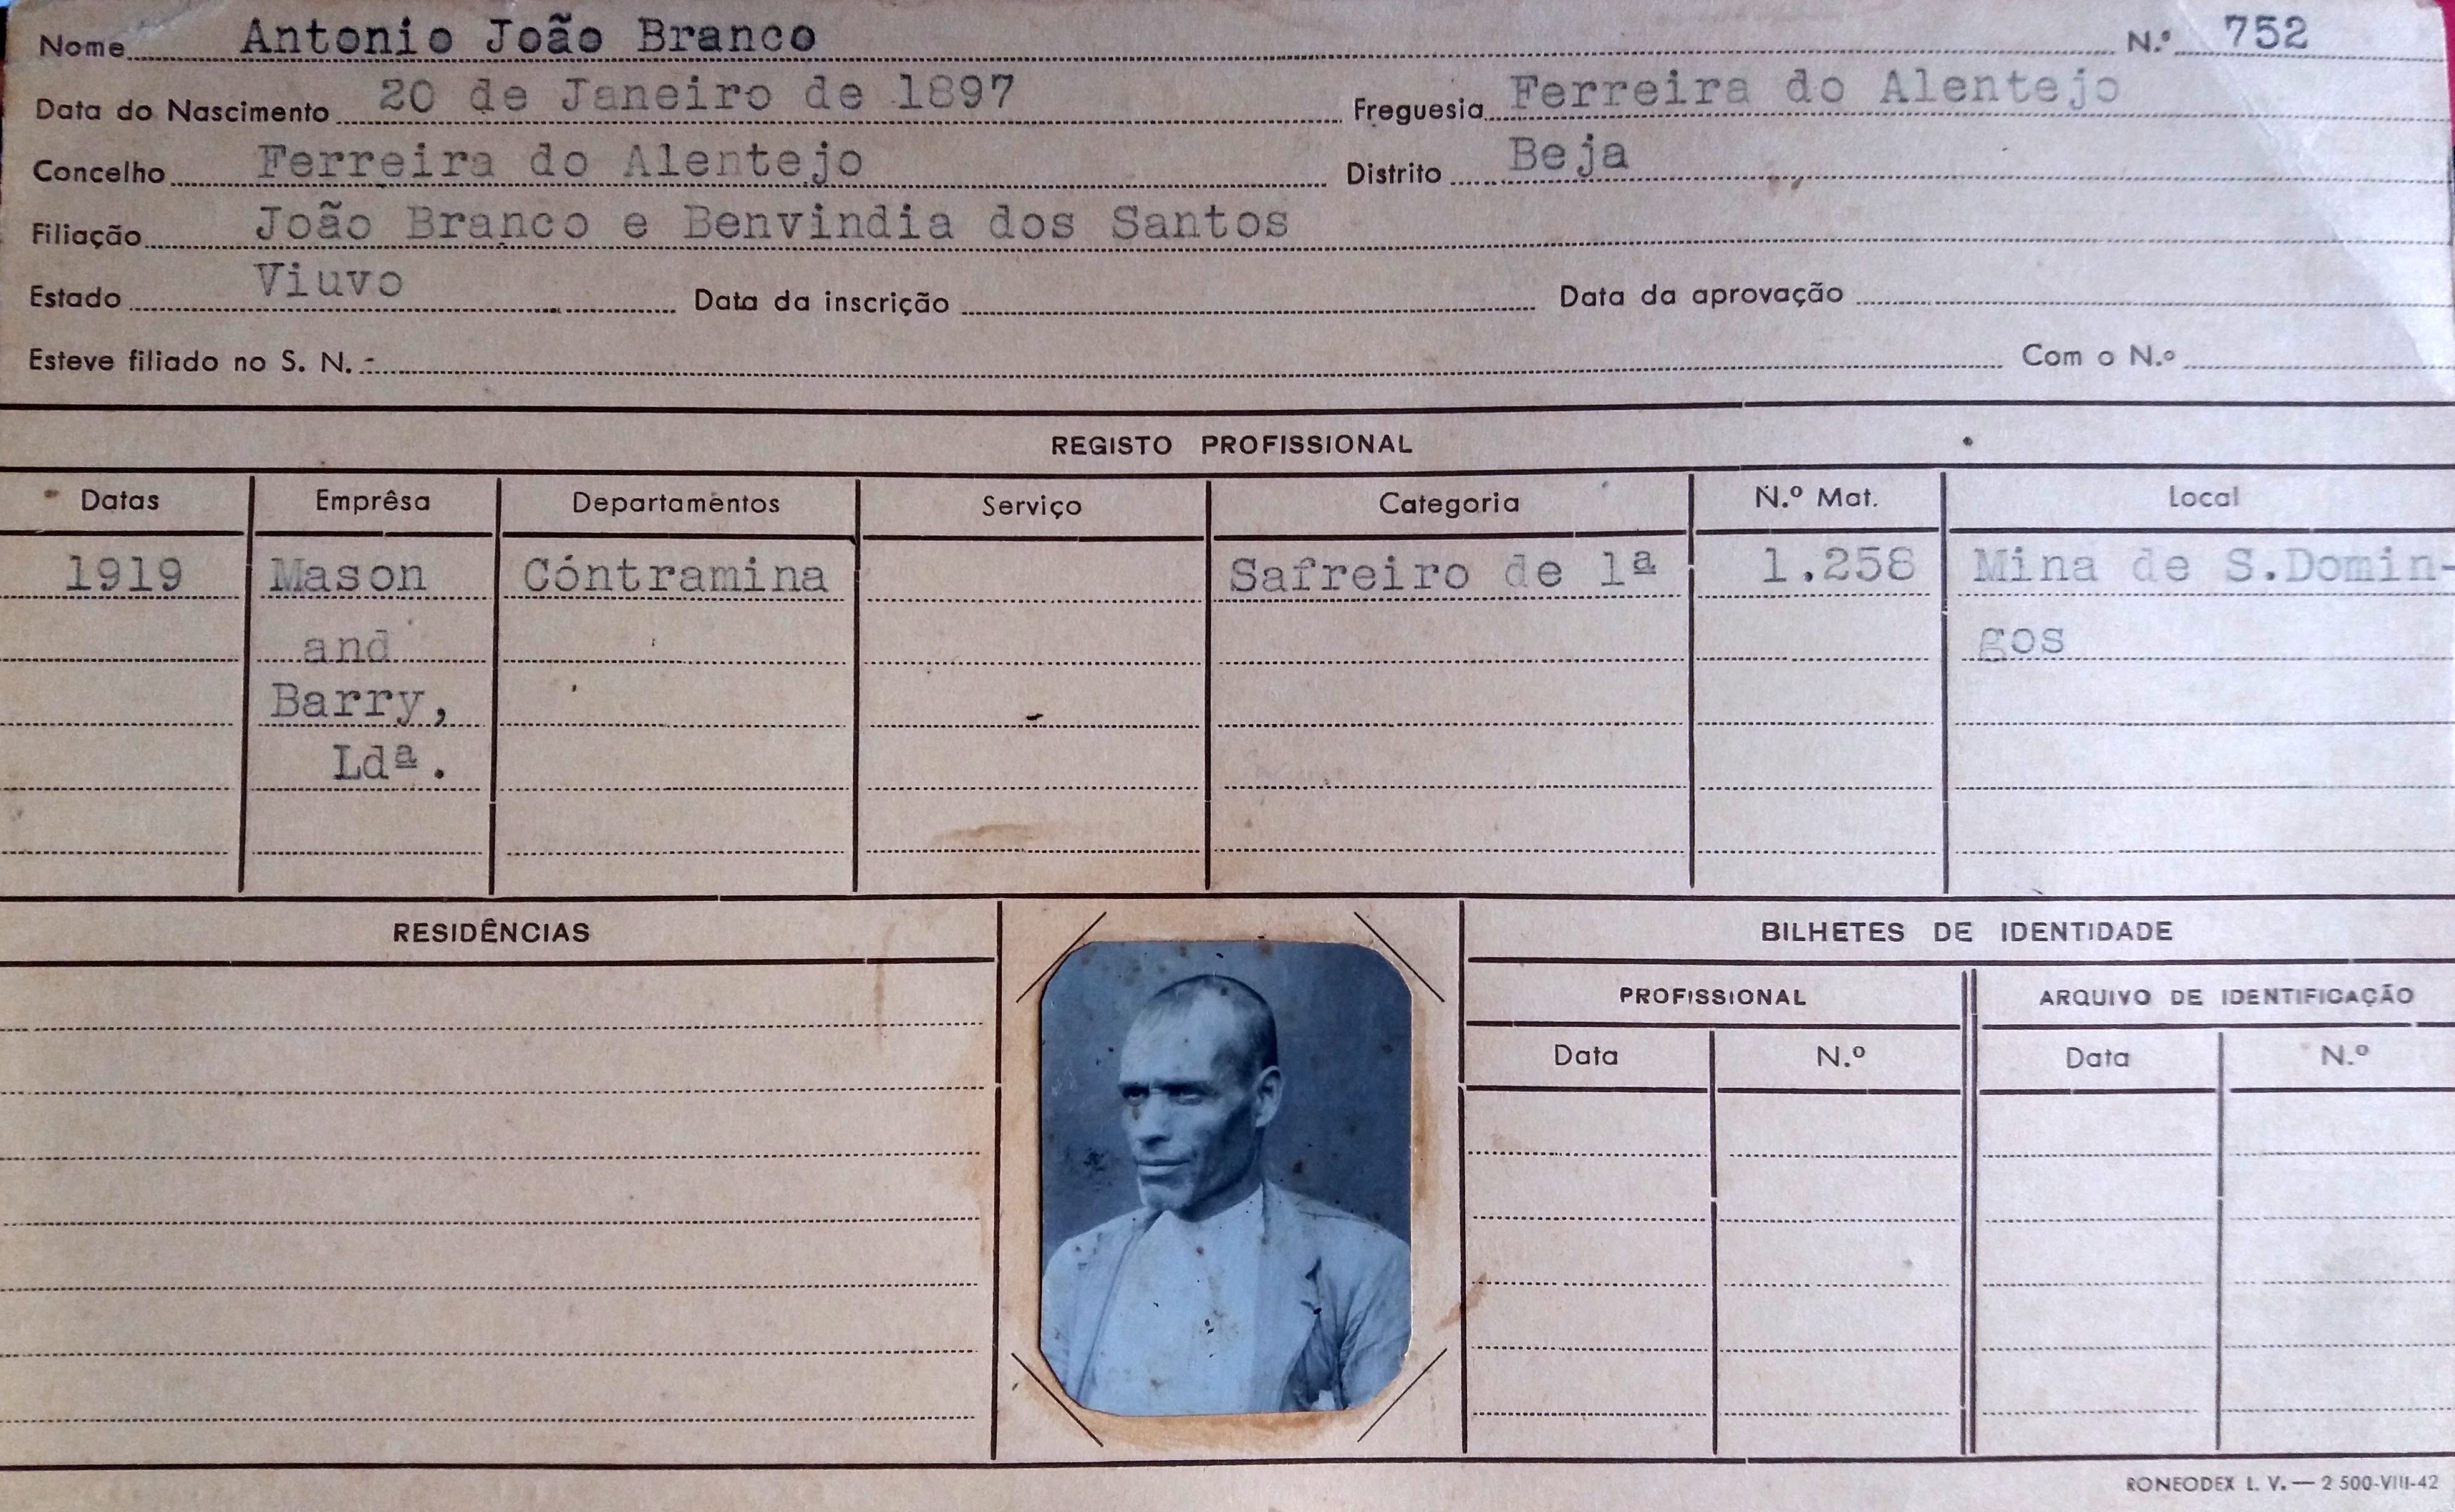 Nome Antonio João Branco N.º 752
Data do Nascimento 20 de Janeiro de 1897 Freguesia Ferreira do Alentejo
Concelho Ferreira do Alentejo Distrito Beja
Filiação João Branco e Benvindia dos Santos
Estado Viuvo Data da inscrição Data da aprovação
Esteve filiado no S. N. - Com o N.º
REGISTO PROFISSIONAL
Datas Emprêsa Departamentos Serviço Categoria N.º Mat. Local
1919 Mason Cóntramina Safreiro de 1ª 1.258 Mina de S.Domin-
and gos
Barry,
Ldª.
RESIDÊNCIAS BILHETES DE IDENTIDADE
PROFISSIONAL ARQUIVO DE IDENTIFICAÇÃO
Data N.º Data N.º
RONEODEX L. V. — 2 500-VIII-42